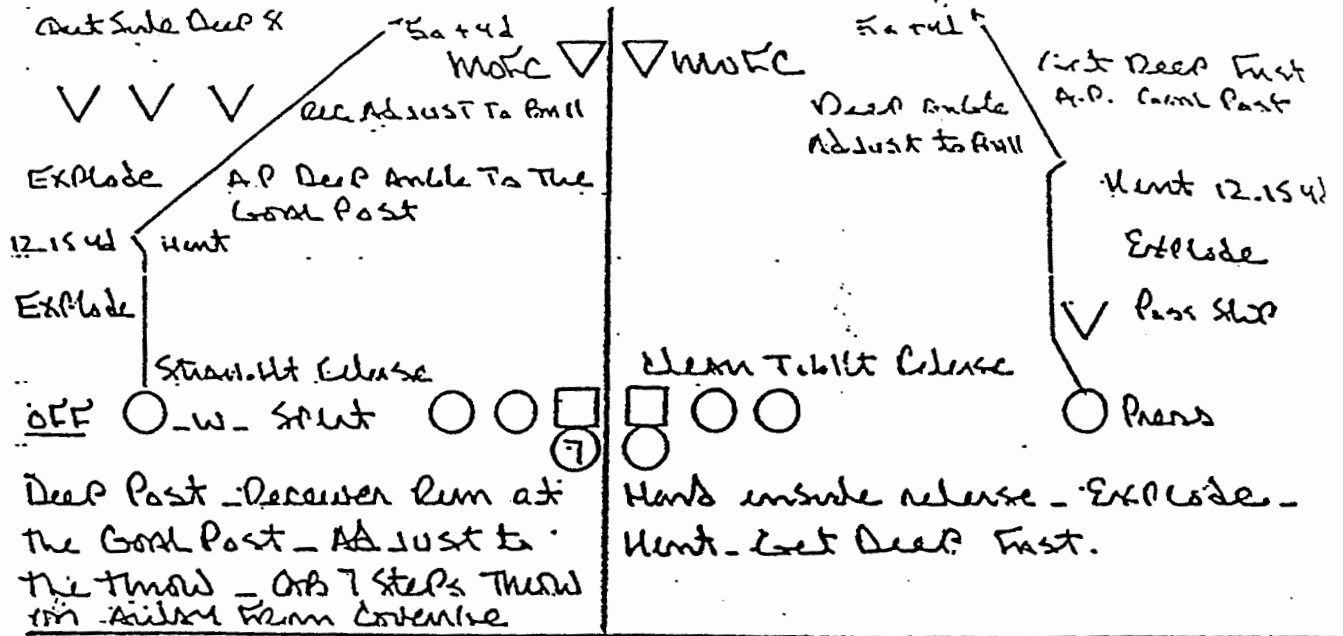 OutSide Deep &
50 + yd
MOFC
Rec Adjust To Ball
Explode
A.P Deep Angle To The
Goal Post
12-15 yd Hent
Explode
Straight Release
OFF -W- Split
7
Deep Post - Receiver Run at
the Goal Post - Adjust to
the throw - QB 7 Steps Throw
Away From Coverage
50 + yd
MOFC
Get Deep Fast
A.P. Goal Post
Deep Angle
Adjust to Ball
Hent 12.15 yd
Explode
Pass Ship
Clean Tight Release
Press
Hard inside release - Explode -
Hent - Get Deep Fast.